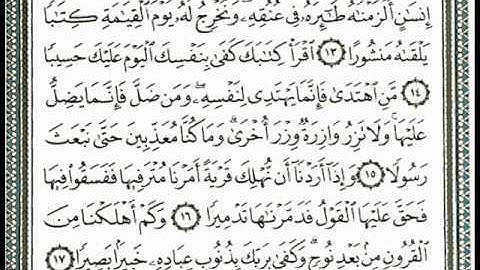 إِنسَٰنٍ أَلْزَمْنَٰهُ طَٰٓئِرَهُۥ فِى عُنُقِهِۦ ۖ وَنُخْرِجُ لَهُۥ يَوْمَ ٱلْقِيَٰمَةِ كِتَٰبًا
يَلْقَىٰهُ مَنشُورًا ١٣ ٱقْرَأْ كِتَٰبَكَ كَفَىٰ بِنَفْسِكَ ٱلْيَوْمَ عَلَيْكَ حَسِيبًا
١٤ مَّنِ ٱهْتَدَىٰ فَإِنَّمَا يَهْتَدِى لِنَفْسِهِۦ ۖ وَمَن ضَلَّ فَإِنَّمَا يَضِلُّ
عَلَيْهَا ۚ وَلَا تَزِرُ وَازِرَةٌ وِزْرَ أُخْرَىٰ ۗ وَمَا كُنَّا مُعَذِّبِينَ حَتَّىٰ نَبْعَثَ
رَسُولًا ١٥ وَإِذَآ أَرَدْنَآ أَن نُّهْلِكَ قَرْيَةً أَمَرْنَا مُتْرَفِيهَا فَفَسَقُوا۟ فِيهَا
فَحَقَّ عَلَيْهَا ٱلْقَوْلُ فَدَمَّرْنَٰهَا تَدْمِيرًا ١٦ وَكَمْ أَهْلَكْنَا مِنَ
ٱلْقُرُونِ مِنۢ بَعْدِ نُوحٍ ۗ وَكَفَىٰ بِرَبِّكَ بِذُنُوبِ عِبَادِهِۦ خَبِيرًۢا بَصِيرًا ١٧